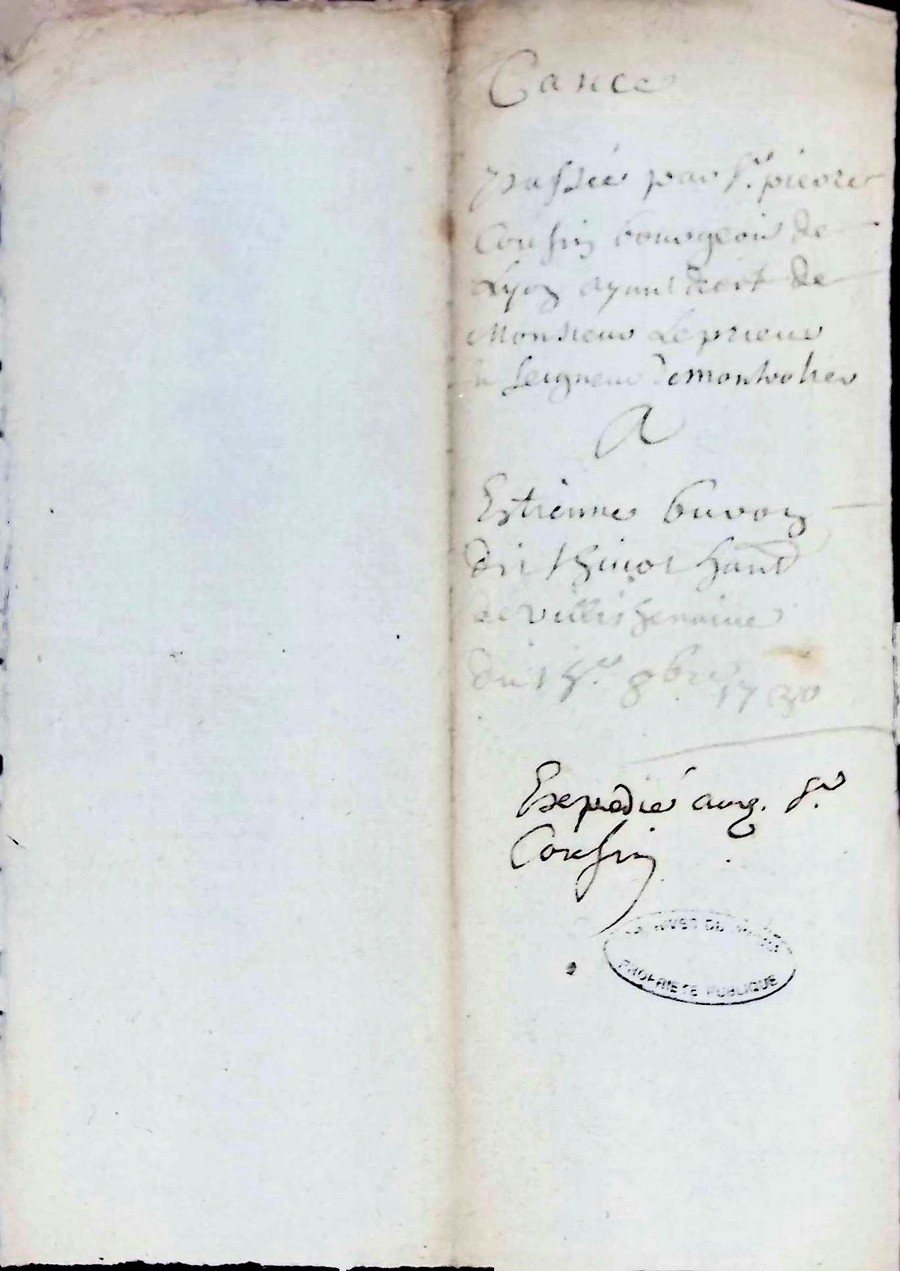 Cance
passée par Sr. pierre
Cousin bourgeois de
Lyon ayant droit de
Monsieur Le prieur
Seigneur de montrotier
A
Estienne
dit hant
de villechenaive
du 8bre 1730
Expedié aud. Sr.
Cousin
ARCHIVES DU
PROPRIETE PUBLIQUE